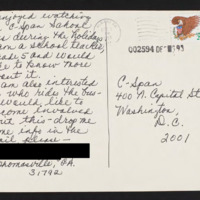 enjoyed watching
C-Span School
Bus during the holidays
am a school teacher
and would
like to know more
about it.
am also interested
who rides the bus-
Would like to
become involved
but this - drop me
some info in the
mail please -
Thomasville, GA.
31792
002594 DEC 93
C-Span
400 N. Capitol St
Washington,
D.C.
2001